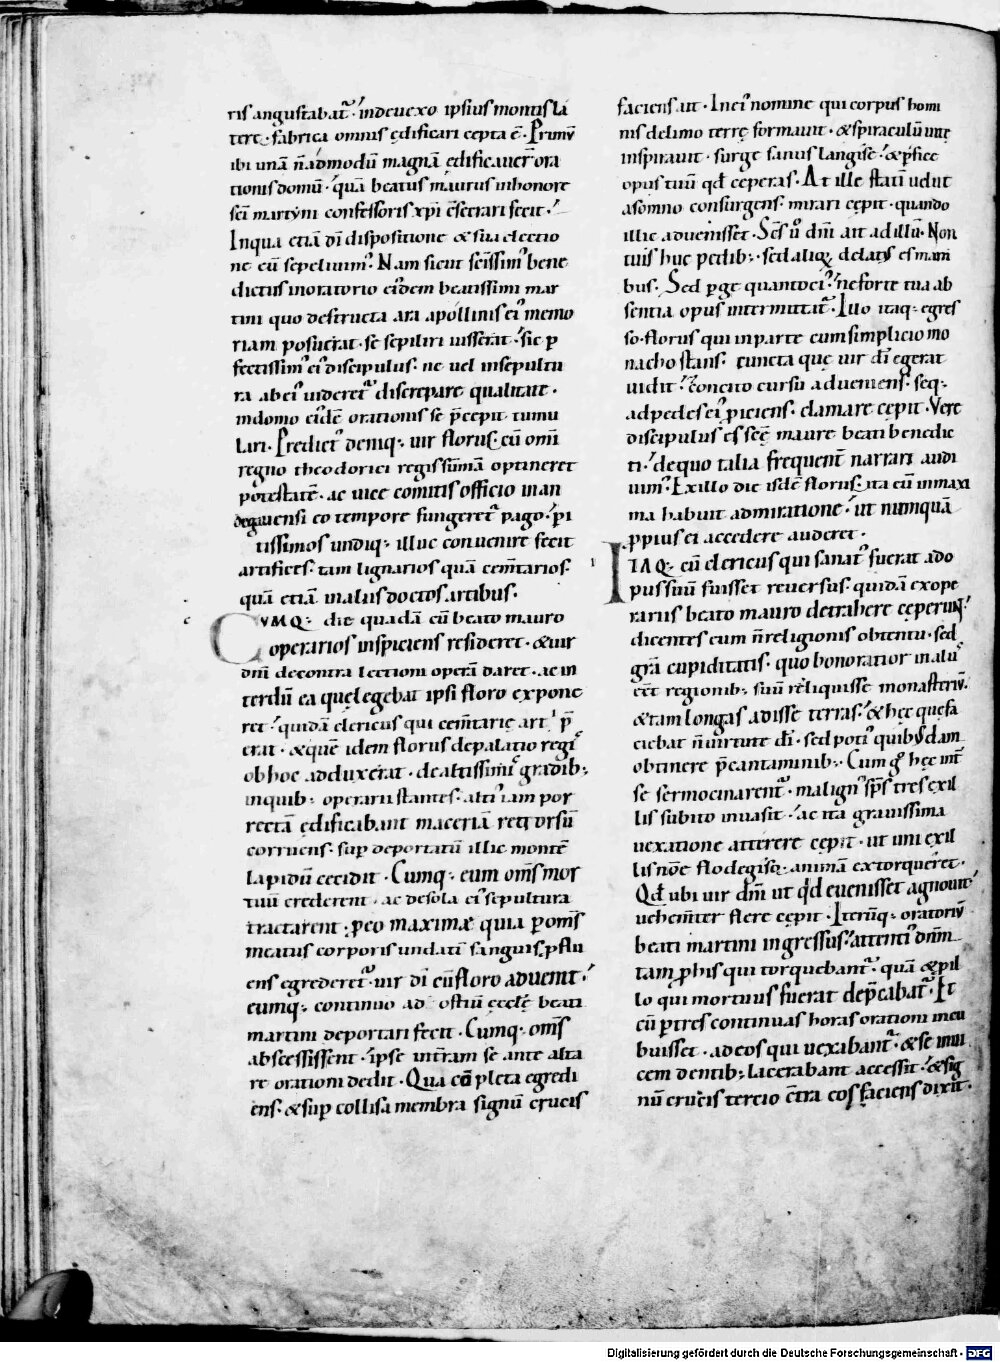 ris angustabat᷑. indeuexo ipsius montis la
tere. fabrica omnis ędificari cepta ē. Primū
ibi unā ñ admodū magnā ędificauer̄ ora
tionis domū. quā beatus maurus in honore
sc̄i martyni confessoris xp̄i c̄secrari fecit.
In qua etiā dī dispositione & sua electio
ne cū sepeliuimꝰ. Nam sicut sc̄issimꝰ bene
dictus in oratorio eꝰdem beatissimi mar
tini quo destructa ara apollinis eiꝰ memo
riam posuerat. se sepiliri iusserat. sic ꝑ
fectissimꝰ eiꝰ discipulus. ne uel in sepultu
ra ab eiꝰ videret᷑ discrepare qualitate.
in domo eiꝰdē orationis se p̄cepit tumu
lari. Predictꝰ deniq; uir florus. cū om̄i
regno theodorici regis sūmā optineret
potestatē. ac uice comitis officio in an
degauensi eo tempore fungeret᷑ pago. pi
tissimos undiq; illuc conuenire fecit
artifices. tam lignarios quā cem̄tarios.
quā etiā in aliis doctos artibus.
CVMQ; die quadā cū beato mauro
operarios inspiciens resideret. & uir
dn̄i de contra lectioni operā daret. ac in
terdū ea quę legebat ipsi floro expone
ret. quidā clericus qui cem̄tarię artꝰ p̄
erat. & quē idem florus de palatio regiꝰ
ob hoc adduxerat. de altissimꝰ gradib;
in quib; operarii stantes. altiꝰ iam por
rectā ędificabant maceriā retrorsū
corruens. sup̄ deportatū illic montē
lapidū cecidit. Cumq; eum om̄s mor
tuū crederent. ac de sola eiꝰ sepultura
tractarent. ꝑeo maximæ quia ꝑ om̄s
meatus corporis undatī sanguis ꝓflu
ens egrederet᷑. uir dī cū floro aduenit.
eumq; continuo ad ostiū ęcclę beati
martini deportari fecit. Cumq; om̄s
abscessissent. ipse int̄ram se ante alta
re orationi dedit. Qua cōpleta egredi
ens. & sup̄ collisa membra signū crucis
faciens. ait. In eiꝰ nomine qui corpus homi
nis de limo terrę formauit. & spiraculū uitę
inspirauit. surge sanus langise. & ꝑfice
opus tuū qđ ceperas. At ille statī uelut
a somno consurgens. mirari cępit. quando
illic aduenisset. Sc̄s ū dn̄i ait ad illū. Non
tuis huc pedib;. sed alioꝝ delatꝰ es mani
bus. Sed ꝑge quantociꝰ. ne forte tua ab
sentia opus intermittat᷑. Illo itaq; egres
so. florus qui in parte cum simplicio mo
nacho stans. cuncta quę uir dī egerat
uidit. concito cursu adueniens. seq;
ad pedes eiꝰ ꝓiciens. clamare cępit. Vere
discipulus es sc̄ę maure beati benedic
ti. de quo talia frequent̄ narrari audi
uimꝰ. Ex illo die isdē florus. ita eū in maxi
ma habuit admiratione. ut numquā
ꝓpius ei accedere auderet.
ITAQ; cū clericus qui sanatꝰ fuerat ad o
pus suū fuisset reuersus. quidā ex ope
rariis beato mauro detrahere cęperunt.
dicentes eum ñ religionis obtentu. sed
gr̄a cupiditatis. quo honoratior in aliiꝰ
eēt regionib; suū reliquisse monasteriū.
& tam longas adisse terras. & hęc quę fa
ciebat ñ uirtute dī. sed potiꝰ quibusdam
obtinere p̄cantaminib;. Cum g̊ hęc int̄
se sermocinarent᷑. malignꝰ sp̄s tres ex il
lis subito inuasit. ac ita grauissima
uexatione atterere cępit. ut uni ex il
lis nōe flodegisq; animam extorqueret.
Qđ ubi uir dn̄i ut qđ euenisset agnouit
uehem̄ter flere cępit. Iterūq; oratoriū
beati martini ingressus. attentiꝰ dn̄m
tam ꝓ his qui torquebant᷑. quā & ꝓ il
lo qui mortuus fuerat dep̄cabat᷑. Et
cū ꝑ tres continuas horas orationi incu
buisset. ad eos qui uexabant᷑. & se inui
cem dentib; lacerabant accessit. & sig
nū crucis tercio c̄tra eos faciens dixit.
Digitalisierung gefördert durch die Deutsche Forschungsgemeinschaft - DFG